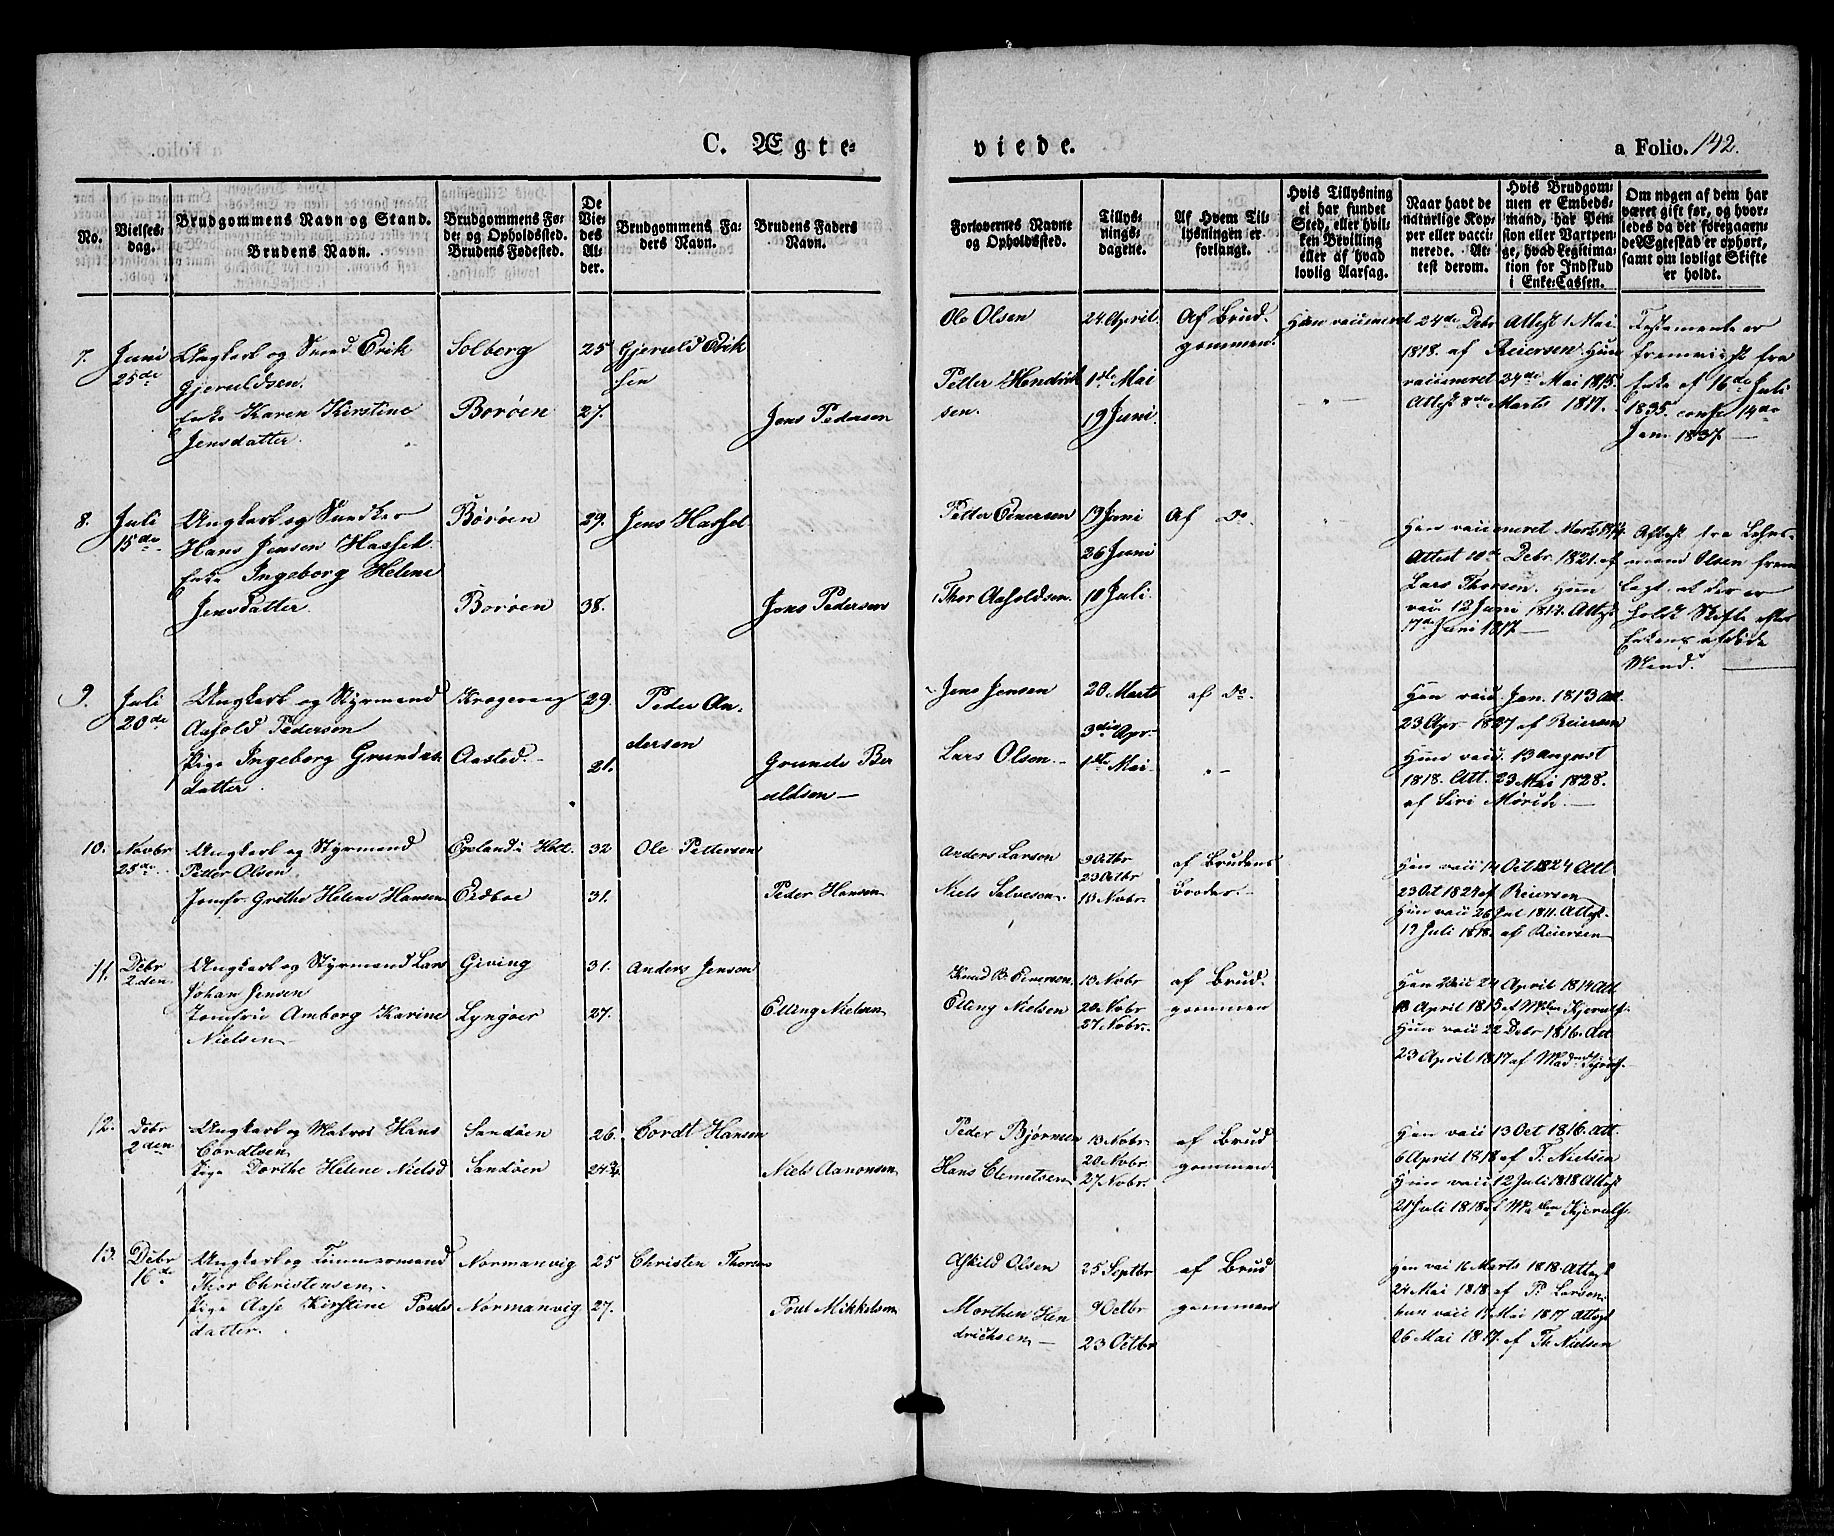 C. Ægte-
viede.
a Folio. 142.
No.
Vielses-
dag.
Brudgommens Navn og Stand.
Brudens Navn.
Brudgommens Fø-
de- og Opholdssted.
Brudens Fødested.
De
Vie-
des
Al-
der.
Brudgommens Fa-
ders Navn.
Brudens Faders
Navn.
Forlovernes Navne
og Opholdssted.
Tillys-
nings-
dagene.
Af Hvem Til-
lysningen er
forlangt.
Hvis Tillysning
ei har fundet
Sted, eller hvil-
ken Bevilling
eller af hvad
lovlig Aarsag.
Naar havt de
naturlige Kop-
per eller vacci-
nerede. At-
test derom.
Hvis Brudgom-
men er Embeds-
mand, har Pen-
sion eller Vartpen-
ge, hvad Legitima-
tion for Indskud
i Enke-Cassen.
Om nogen af dem har
været gift før, og hvor-
ledes da det foregaaen-
de Ægteskab er ophørt,
samt om lovligt Skifte
er holdt.
7. Juni
25de
Ungkarl og Smed Erik
Gjeruldsen.
Enke Karen Kirstine
Jensdatter.
Solberg
Borøen
25
27.
Gjeruld Erik
sen
Jens Pedersen
Ole Olsen
Petter Hendrik
sen.
24 April.
1ste Mai
19 Juni
Af Brud.
gommen.
Han vaccineret 24de Debr Attest 1 Mai
1818. af Reiersen. Hun
vaccineret 24de Mai 1815.
Attest 8de Marts 1817.
Testamente er
fremvist fra
Enke af 16de Juli
1835. conf. 14de
Jan. 1837
8. Juli
15de
Ungkarl og Snedker
Hans Jensen Hassel.
Enke Ingeborg Helene
Jensdatter.
Borøen
Borøen
29.
38.
Jens Hassel
Jens Pedersen
Petter Einersen
Thor Aasoldsen.
19 Juni
26 Juni
10 Juli.
Af Do
Han vaccineret Marts 1814
Attest 10de Debr 1821. af
Lars Thorsen. Hun
vac. 12 Juni 1817. Attest
17de Juni 1817
Attest fra Lehns-
mand Olsen frem
lagt at der er
holdt Skifte efter
Enkens afdøde
Mand.
9. Juli
20de
Ungkarl og Styrmand
Aasold Pedersen
Pige Ingeborg Grundes
datter
Kragevaag
Aasted.
29.
21.
Peder An-
dersen
Grunde Ber
uldsen
Jens Jensen
Lars Olsen
20 Marts
3die Apr.
1ste Mai
af Do
Han vacc. Jan. 1813 Att.
23 Apr. 1827 af Reiersen
Hun vacc. 13 august
1818. Att. 23 Mai 1828.
af Siri Mørich.
10. Novbr
25de
Ungkarl og Styrmand
Petter Olsen
Jomfr Grethe Helene Hansen
Egelands Hovt.
Eidboe
32
31.
Ole Pettersen
Peder Hansen
Anders Larsen
Niels Salvesen.
9 Octbr
23 Octbr
13 Novbr.
af Brudens
Broder.
Han vacc 14 Oct 1824 Att
23 Oct 1824 af Reiersen
Hun vacc 26 Jul 1811. Attest
19 Juli 1818. af Reiersen
11. Debr
2den
Ungkarl og Styrmand Lars
Johan Jensen
Jomfrue Amborg Karine
Nielsen
Giving
Lyngøer
31.
27.
Anders Jensen
Elling Nielsen
Knud B. Einersen.
Elling Nielsen
13 Novbr
20 Novbr
27 Novbr.
af Brud
gommen
Han vacc 24 April 1814 Att
8 April 1815 af Mdm Kjerulf.
Hun vacc 22 Debr 1816. Att
23 April 1817 af Madme Kjerulf.
12. Debr
2den
Ungkarl og Matros Hans
Cordtsen
Pige Dorthe Helene Nielsd
Sandøen
Sandøen
26.
24 3/4
Cordt Hansen
Niels Aanonsen
Peder Bjørnsen
Hans Clemetsen
13 Novbr
20 Novbr
27 Novbr
af Brud
gommen
Han vacc 13 Oct 1816. Att.
6 April 1818 af T. Nielsen
Hun vacc 12 Juli 1818 Attest
21 Juli 1818 af Mdm Kjerulf.
13. Debr
16de
Ungkarl og Tømmermand
Thor Christensen.
Pige Aase Kirstine Pouls
datter.
Normanvig
Normanvig
25
27.
Christen Thorsen
Poul Mikkelsen
Askild Olsen
Morthen Hen
drichsen
25 Septbr
9 Octbr
23 Octbr
af Brud
gommen
Han vacc 16 Marts 1818 Attest
24 Mai 1818. af P. Larsen
hun vacc 17 Mai 1817 Attest
26 Mai 1817. af Th Nielsen